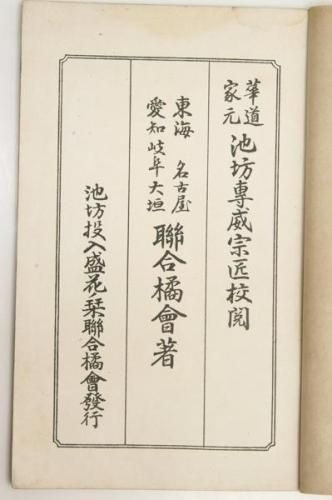 華道家元 池坊專威宗匠校閲
東海 名古屋
愛知岐阜大垣 聯合橘會著
池坊投入盛花栞聯合橘會發行